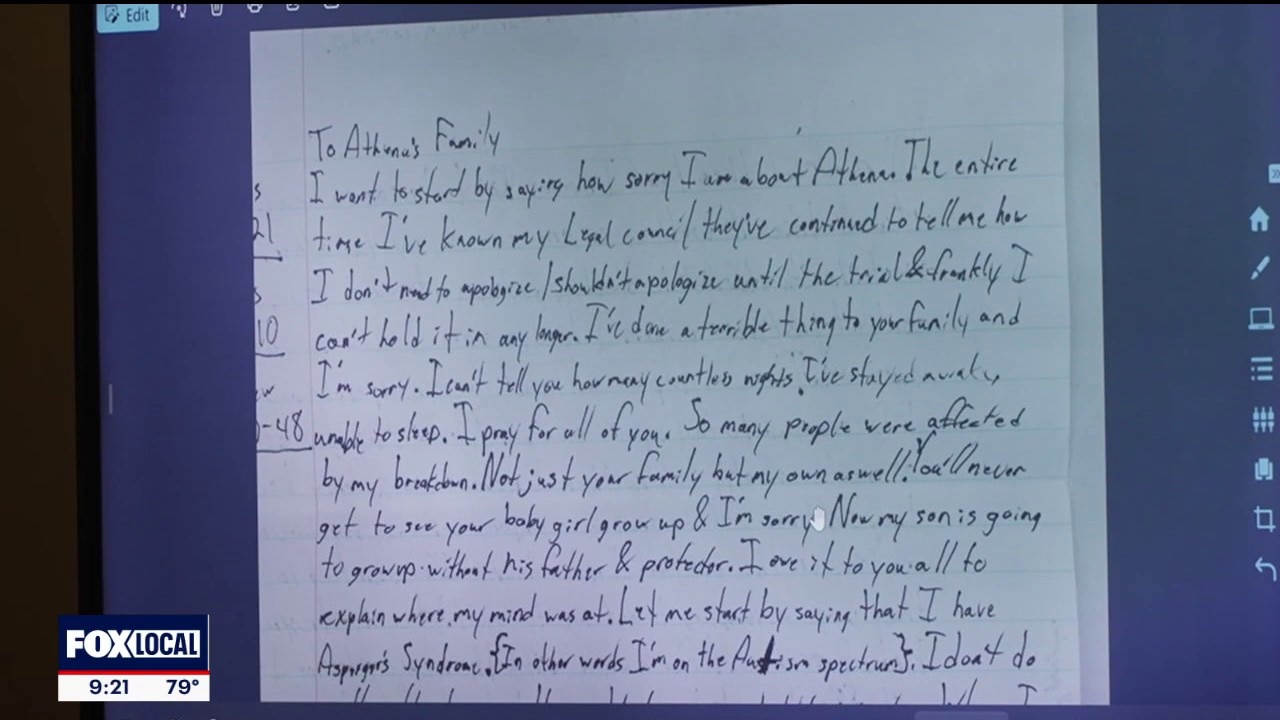 Edit
To Athena's Family
I want to start by saying how sorry I am about Athena. The entire
time I've known my Legal council they've continued to tell me how
I don't need to apologize/shouldn't apologize until the trial & frankly I
can't hold it in any longer. I've done a terrible thing to your family and
I'm sorry. I can't tell you how many countless nights I've stayed awake,
unable to sleep. I pray for all of you. So many people were affected
by my breakdown. Not just your family but my own aswell. You'll never
get to see your baby girl grow up & I'm sorry. Now my son is going
to grow up without his father & protector. I owe it to you all to
explain where my mind was at. Let me start by saying that I have
Asperger's Syndrome. {In other words I'm on the Autism spectrum}. I don't do
s
21
s
10
ew
-48
FOX LOCAL
9:21 79°